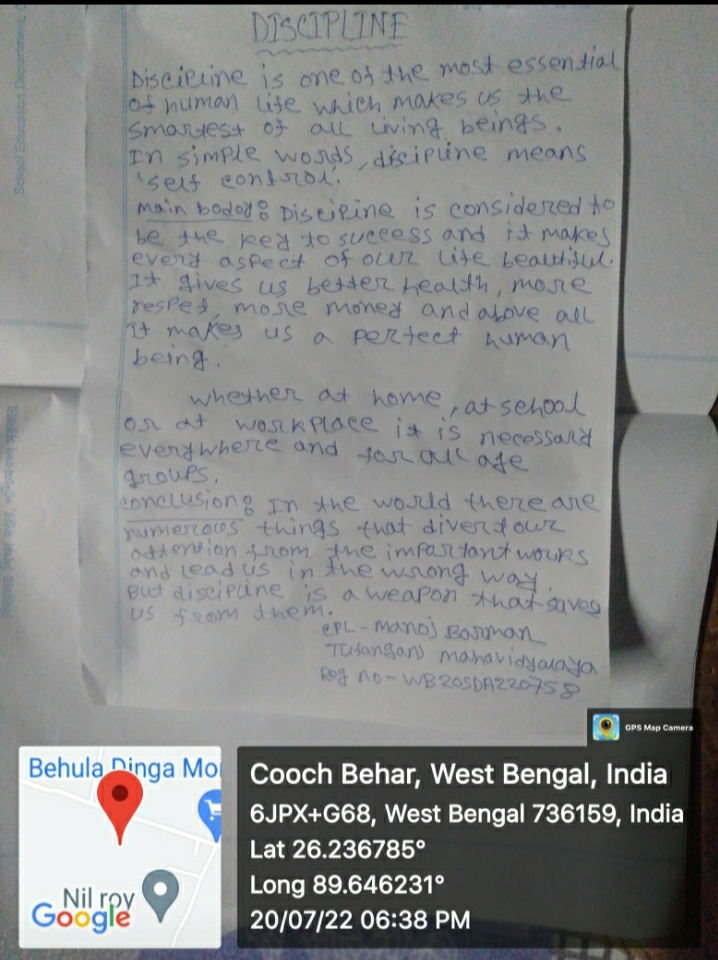 DISCIPLINE
Discipline is one of the most essential
of human life which makes us the
smartest of all living beings.
In simple words, discipline means
'self control'.
Main bodoy: Discipline is considered to
be the key to success and it makes
every aspect of our life beautiful.
It gives us better health, more
respet, more money and above all
it makes us a perfect human
being.
whether at home, at school
or at workplace it is necessary
everywhere and for all age
groups.
Conclusion: In the world there are
numerous things that divert our
attention from the important works
and lead us in the wrong way.
But discipline is a weapon that saves
us from them.
CPL - Manoj Barman
Tufanganj Mahavidyalaya
Reg no - WB20SDA220758
GPS Map Camera
Behula Dinga Mo
Nil roy
Google
Cooch Behar, West Bengal, India
6JPX+G68, West Bengal 736159, India
Lat 26.236785°
Long 89.646231°
20/07/22 06:38 PM
School Education Department, G